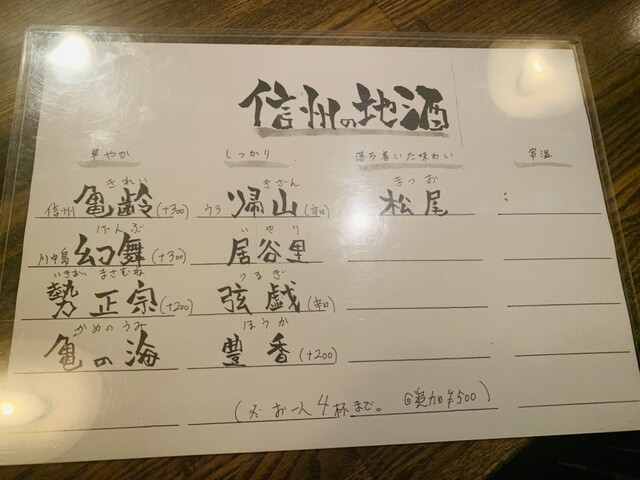 信州の地酒
華やか しっかり 落ち着いた味わい 常温
きれい きざん まつお
信州 亀齢 (+300) ウラ 帰山 (辛口) 松尾
げんぶ いやり
川中島 幻舞 (+300) 居谷里
いきおい まさむね つるぎ
勢正宗 (+200) 弦戯 (辛口)
かめのうみ ほうか
亀の海 豊香 (+200)
(※お一人4杯まで。 追加¥500)